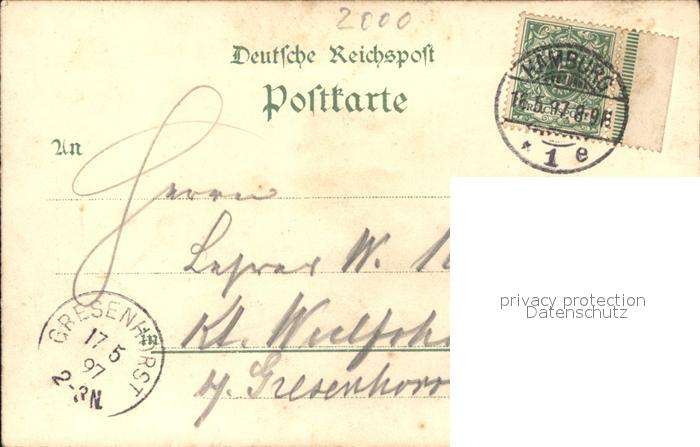 2000
Deutsche Reichspost
Postkarte
HAMBURG
16.5.97.8-9N
* 1 e
An
Herrn
Lehrer W.
Kl.
b/ Gresenhors
in
GRESENHORST
17 5
97
2-3N
privacy protection
Datenschutz